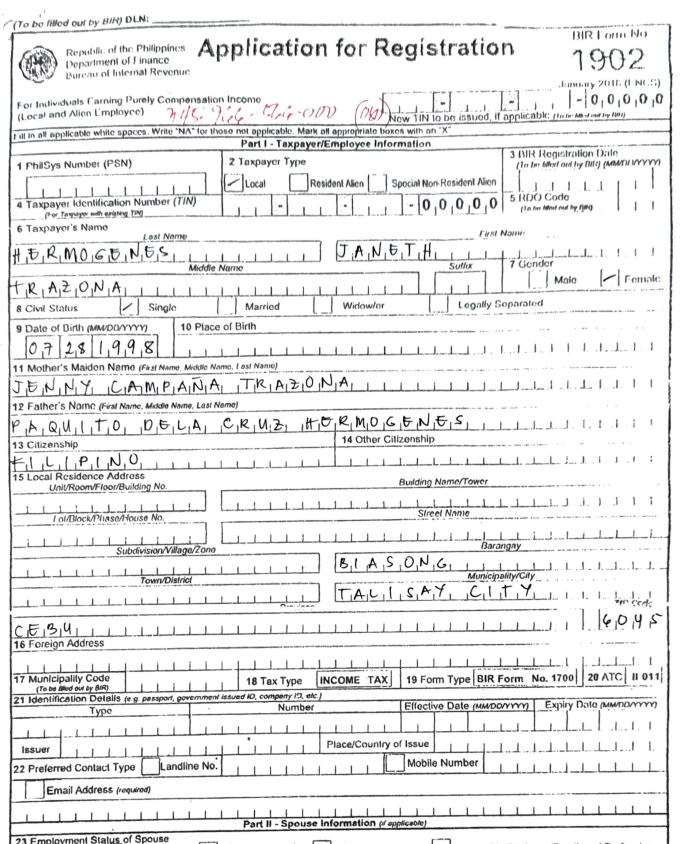 (To be filled out by BIR) DLN:
Republic of the Philippines
Department of Finance
Bureau of Internal Revenue
Application for Registration
BIR Form No
1902
January 2018 (ENCS)
For Individuals Earning Purely Compensation Income
(Local and Alien Employee)
- - - 0 0 0 0 0
New TIN to be issued, if applicable (To be filled out by BIR)
Fill in all applicable white spaces. Write "NA" for those not applicable. Mark all appropriate boxes with an "X"
Part I - Taxpayer/Employee Information
1 PhilSys Number (PSN)
2 Taxpayer Type
Local Resident Alien Special Non-Resident Alien
3 BIR Registration Date
(To be filled out by BIR) (MM/DD/YYYY)
4 Taxpayer Identification Number (TIN)
(For Taxpayer with existing TIN)
- - - 0 0 0 0 0
5 RDO Code
(To be filled out by BIR)
6 Taxpayer's Name
Last Name First Name
HERMOGENES JANETH
Middle Name Suffix
TRAZONA
7 Gender
Male Female
8 Civil Status Single Married Widow/er Legally Separated
9 Date of Birth (MM/DD/YYYY) 10 Place of Birth
07 28 1998
11 Mother's Maiden Name (First Name, Middle Name, Last Name)
JENNY CAMPAÑA TRAZONA
12 Father's Name (First Name, Middle Name, Last Name)
PAQUITO DELA CRUZ HERMOGENES
13 Citizenship 14 Other Citizenship
FILIPINO
15 Local Residence Address
Unit/Room/Floor/Building No. Building Name/Tower
Lot/Block/Phase/House No. Street Name
Subdivision/Village/Zone Barangay
BIASONG
Town/District Municipality/City
TALISAY CITY
CEBU 6045
16 Foreign Address
17 Municipality Code
(To be filled out by BIR)
18 Tax Type INCOME TAX 19 Form Type BIR Form No. 1700 20 ATC II 011
21 Identification Details (e.g. passport, government issued ID, company ID, etc.)
Type Number Effective Date (MM/DD/YYYY) Expiry Date (MM/DD/YYYY)
Issuer Place/Country of Issue
22 Preferred Contact Type Landline No. Mobile Number
Email Address (required)
Part II - Spouse Information (if applicable)
23 Employment Status of Spouse